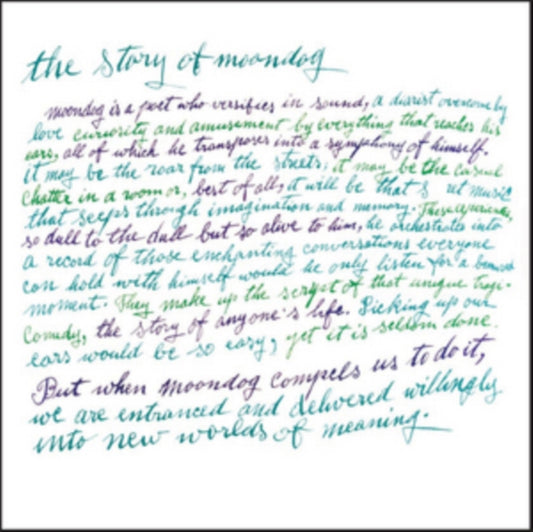 the story of moondog
moondog is a poet who versifies in sound, a diarist overcome by
love curiosity and amusement by everything that reaches his
ears, all of which he transposes into a symphony of himself.
it may be the roar from the streets; it may be the casual
chatter in a room or, best of all, it will be that music
that seeps through imagination and memory. These
so dull to the dull but so alive to him, he orchestrates into
a record of those enchanting conversations everyone
can hold with himself would he only listen for a
moment. They make up the script of that unique tragi-
comedy, the story of anyone's life. Picking up our
ears would be so easy, yet it is seldom done.
But when moondog compels us to do it,
we are entranced and delivered willingly
into new worlds of meaning.